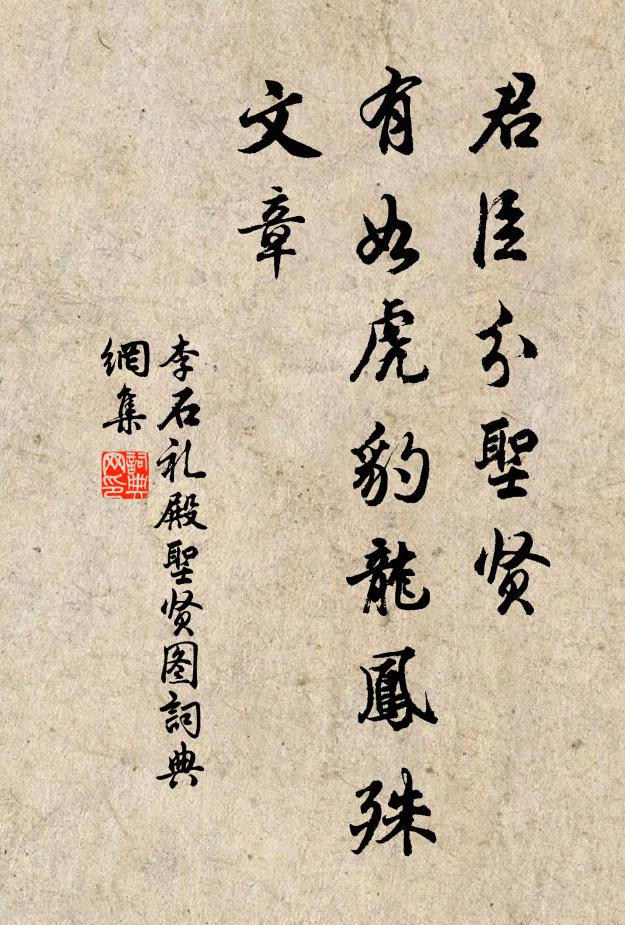 君臣分聖贤
有如虎豹龍鳳殊
文章
李石礼殿聖贤图詞典
網集
詞典
网印